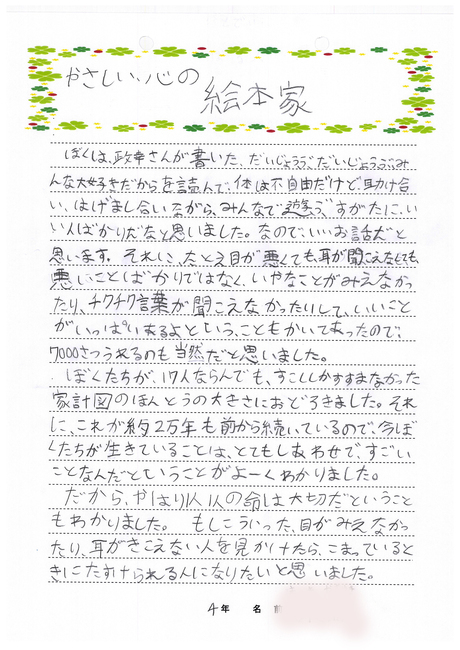 やさしい心の
絵本家
ぼくは、政幸さんが書いた、だいじょうぶだいじょうぶみ
んな大好きだからを読んで、体は不自由だけど、助け合
い、はげまし合いながら、みんなで遊ぶすがたに、い
い人ばかりだなと思いました。なので、いいお話だと
思います。それに、たとえ目が悪くても、耳が聞こえなくても、
悪いことばかりではなく、いやなことがみえなかっ
たり、チクチク言葉が聞こえなかったりして、いいこと
がいっぱいあるよということもかいてあったので、
7000さつうれるのも当然だと思いました。
ぼくたちが、17人ならんでも、すこししかすすまなかった
家計図のほんとうの大きさにおどろきました。それ
に、これが約2万年も前から続いているので、今ぼ
くたちが生きていることは、とてもしあわせで、すごい
ことなんだということがよーくわかりました。
だから、やはり人人の命は大切だということ
もわかりました。 もしこういった、目がみえなかっ
たり、耳がきこえない人を見かけたら、こまっていると
きにたすけられる人になりたいと思いました。
4年 名前